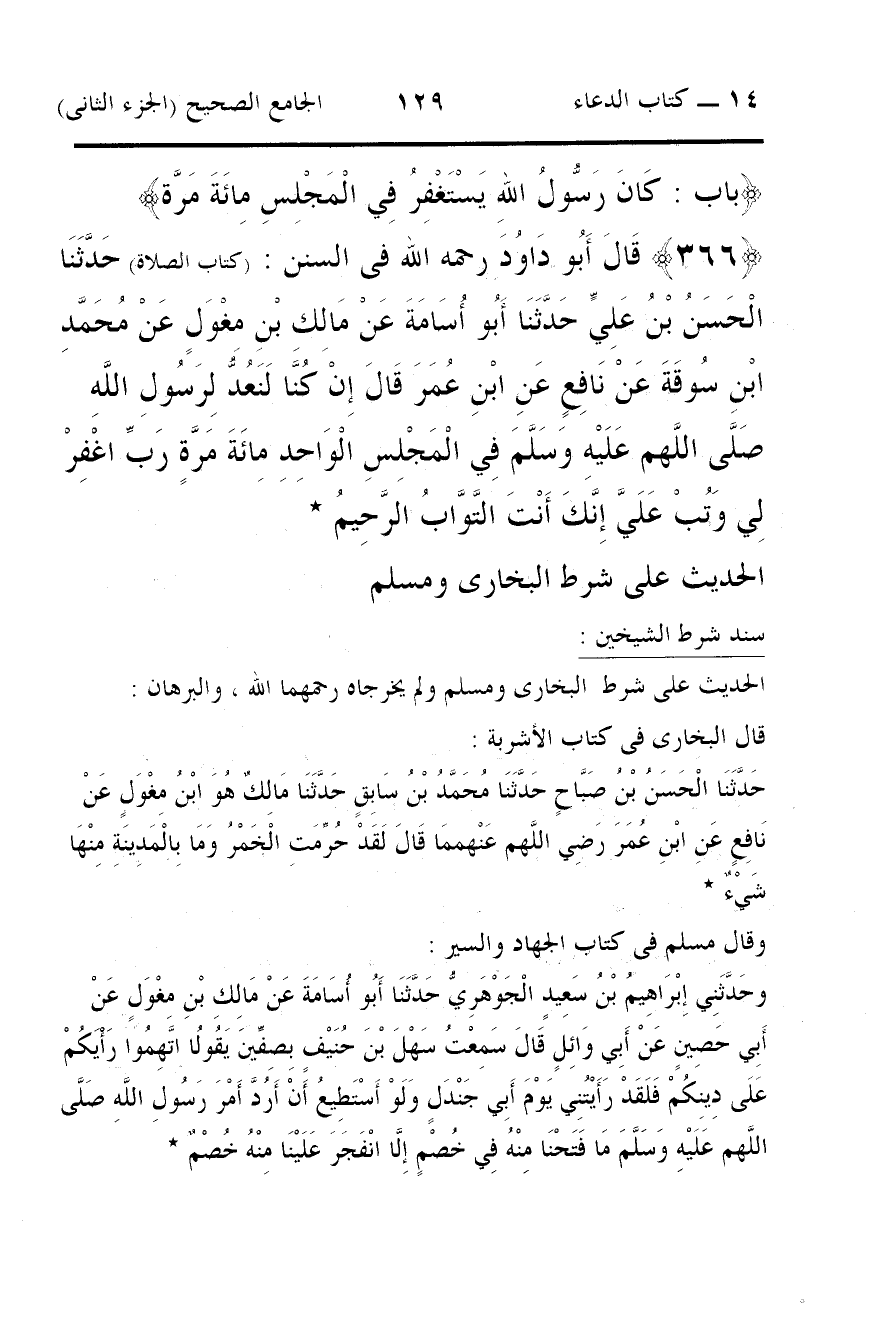 ١٤ ــ كتاب الدعاء ١٢٩ الجامع الصحيح (الجزء الثانى)
﴿باب : كَانَ رَسُولُ الله يَسْتَغْفِرُ فِي الْمَجْلِسِ مِائَةَ مَرَّة﴾
﴿٣٦٦﴾ قَالَ أَبُو دَاوُدَ رحمه الله فى السنن : (كتاب الصلاة) حَدَّثَنَا
الْحَسَنُ بْنُ عَلِيٍّ حَدَّثَنَا أَبُو أُسَامَةَ عَنْ مَالِكِ بْنِ مِغْوَلٍ عَنْ مُحَمَّدِ
ابْنِ سُوقَةَ عَنْ نَافِعٍ عَنِ ابْنِ عُمَرَ قَالَ إِنْ كُنَّا لَنَعُدُّ لِرَسُولِ اللَّهِ
صَلَّى اللَّهم عَلَيْهِ وَسَلَّمَ فِي الْمَجْلِسِ الْوَاحِدِ مِائَةَ مَرَّةٍ رَبِّ اغْفِرْ
لِي وَتُبْ عَلَيَّ إِنَّكَ أَنْتَ التَّوَّابُ الرَّحِيمُ *
الحديث على شرط البخارى ومسلم
سند شرط الشيخين :
الحديث على شرط البخارى ومسلم ولم يخرجاه رحمهما الله ، والبرهان :
قال البخارى فى كتاب الأشربة :
حَدَّثَنَا الْحَسَنُ بْنُ صَبَّاحٍ حَدَّثَنَا مُحَمَّدُ بْنُ سَابِقٍ حَدَّثَنَا مَالِكٌ هُوَ ابْنُ مِغْوَلٍ عَنْ
نَافِعٍ عَنِ ابْنِ عُمَرَ رَضِي اللَّهم عَنْهممَا قَالَ لَقَدْ حُرِّمَتِ الْخَمْرُ وَمَا بِالْمَدِينَةِ مِنْهَا
شَيْءٌ *
وقال مسلم فى كتاب الجهاد والسير :
وحَدَّثَنِي إِبْرَاهِيمُ بْنُ سَعِيدٍ الْجَوْهَرِيُّ حَدَّثَنَا أَبُو أُسَامَةَ عَنْ مَالِكِ بْنِ مِغْوَلٍ عَنْ
أَبِي حَصِينٍ عَنْ أَبِي وَائِلٍ قَالَ سَمِعْتُ سَهْلَ بْنَ حُنَيْفٍ بِصِفِّينَ يَقُولُا اتَّهِمُوا رَأْيَكُمْ
عَلَى دِينِكُمْ فَلَقَدْ رَأَيْتُنِي يَوْمَ أَبِي جَنْدَلٍ وَلَوْ أَسْتَطِيعُ أَنْ أَرُدَّ أَمْرَ رَسُولِ اللهِ صَلَّى
اللَّهم عَلَيْهِ وَسَلَّمَ مَا فَتَحْنَا مِنْهُ فِي خُصْمٍ إِلَّا انْفَجَرَ عَلَيْنَا مِنْهُ خُصْمٌ *